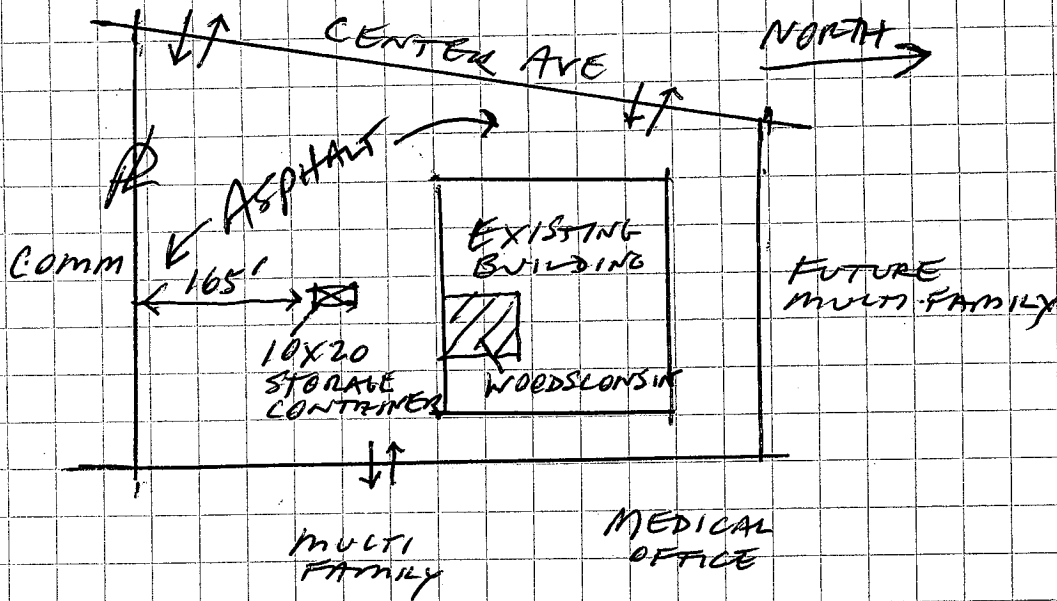 CENTER AVE
NORTH
PL
ASPHALT
EXISTING
BUILDING
Comm
165'
FUTURE
MULTI-FAMILY
10X20
STORAGE
CONTAINER
WOODSCONSIN
MULTI
FAMILY
MEDICAL
OFFICE